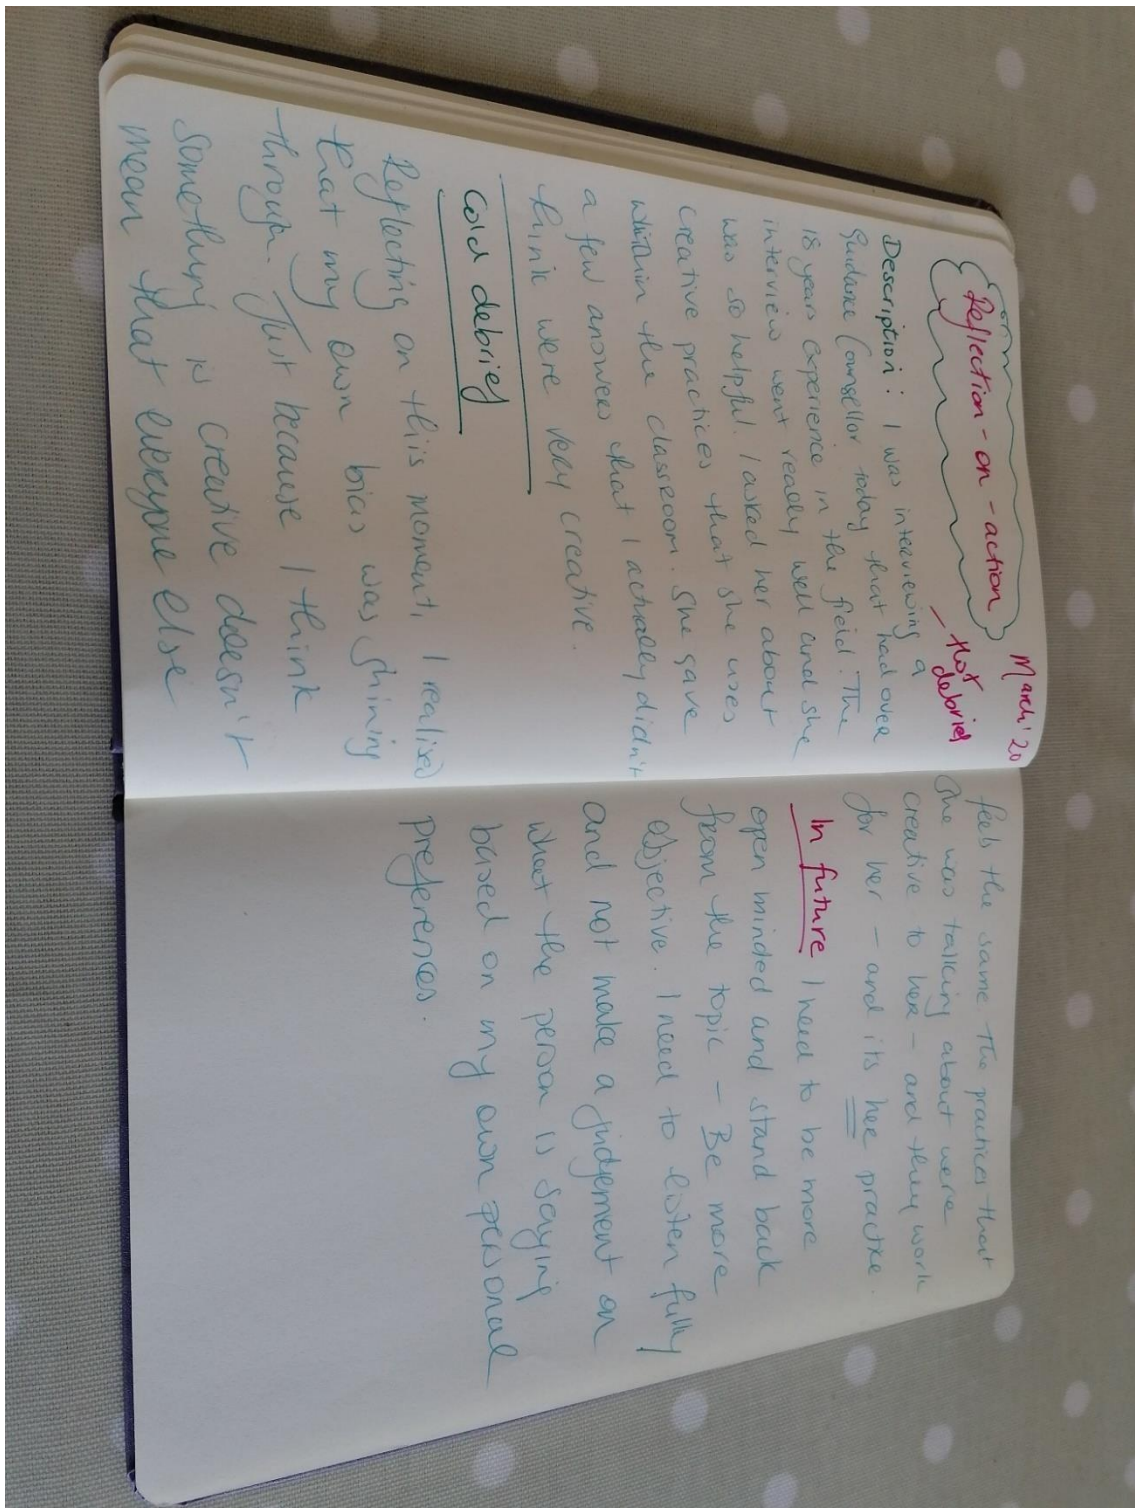 March '20
Reflection-on-action
- Hot
debrief
Description: I was interviewing a
Guidance Counsellor today that had over
18 years experience in the field. The
interview went really well and she
was so helpful. I asked her about
creative practices that she uses
within the classroom. She gave
a few answers that I actually didn't
think were very creative.
Cold debrief
Reflecting on this moment, I realised
that my own bias was shining
through. Just because I think
something is creative doesn't
mean that everyone else
feels the same the practices that
she was talking about were
creative to her - and they work
for her - and its her practice.
In future I need to be more
open minded and stand back
from the topic - Be more
objective. I need to listen fully
and not make a judgement on
what the person is saying
based on my own personal
preferences.